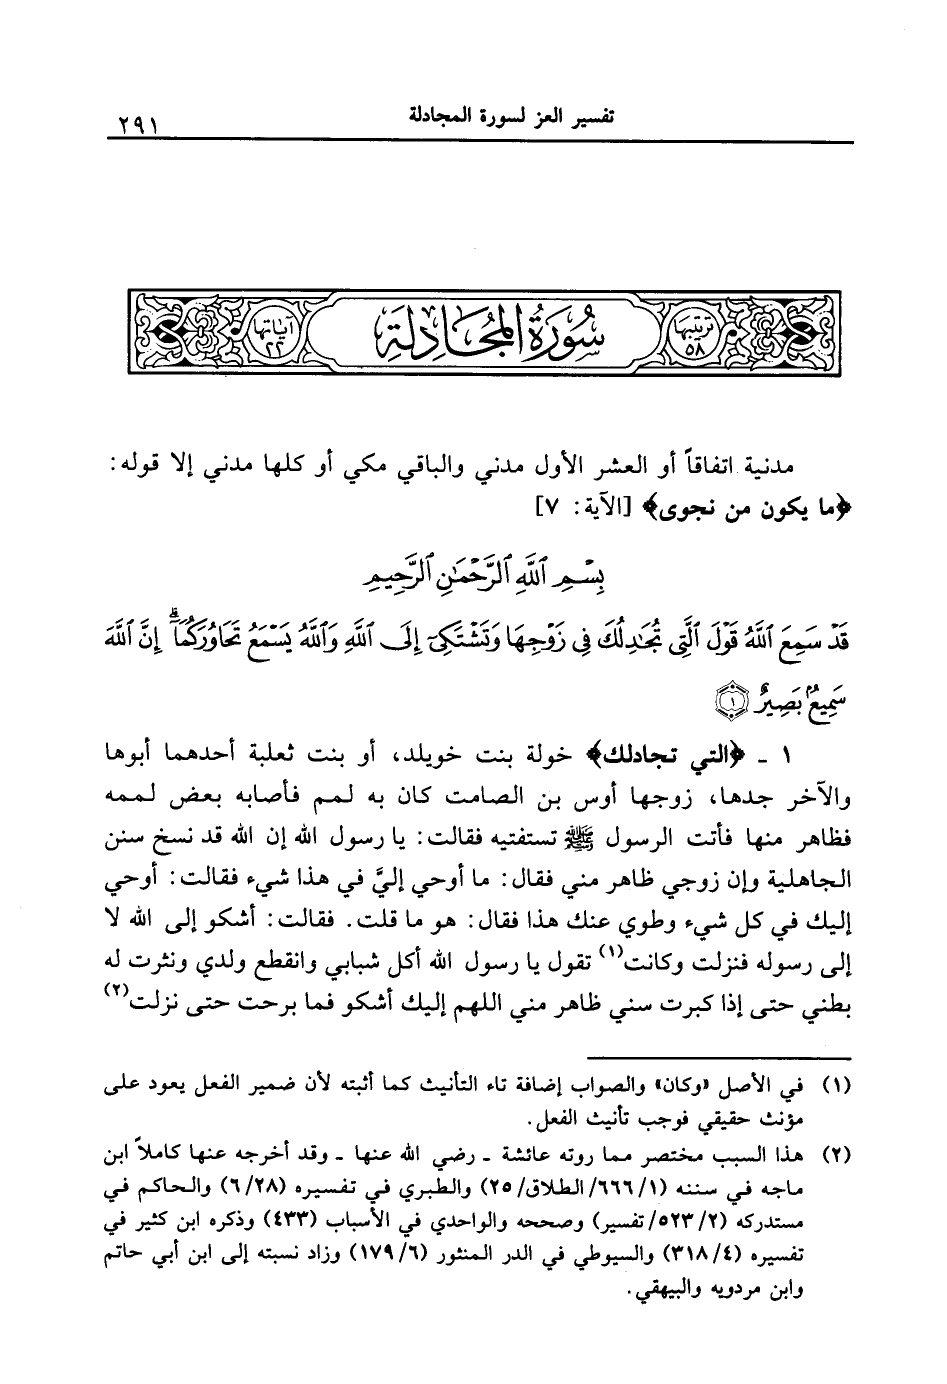 تفسير العز لسورة المجادلة
٢٩١
ترتيبها ٥٨
سُورَةُ المُجَادِلَةِ
آياتها ٢٢
مدنية اتفاقاً أو العشر الأول مدني والباقي مكي أو كلها مدني إلا قوله:
﴿ما يكون من نجوى﴾ [الآية: ٧]
بِسْمِ ٱللَّهِ ٱلرَّحْمَٰنِ ٱلرَّحِيمِ
قَدْ سَمِعَ ٱللَّهُ قَوْلَ ٱلَّتِى تُجَٰدِلُكَ فِى زَوْجِهَا وَتَشْتَكِىٓ إِلَى ٱللَّهِ وَٱللَّهُ يَسْمَعُ تَحَاوُرَكُمَآ ۚ إِنَّ ٱللَّهَ
سَمِيعٌۢ بَصِيرٌ ١
١ ـ ﴿التي تجادلك﴾ خولة بنت خويلد، أو بنت ثعلبة أحدهما أبوها
والآخر جدها، زوجها أوس بن الصامت كان به لمم فأصابه بعض لممه
فظاهر منها فأتت الرسول ﷺ تستفتيه فقالت: يا رسول الله إن الله قد نسخ سنن
الجاهلية وإن زوجي ظاهر مني فقال: ما أوحي إليَّ في هذا شيء فقالت: أوحي
إليك في كل شيء وطوي عنك هذا فقال: هو ما قلت. فقالت: أشكو إلى الله لا
إلى رسوله فنزلت وكانت(١) تقول يا رسول الله أكل شبابي وانقطع ولدي ونثرت له
بطني حتى إذا كبرت سني ظاهر مني اللهم إليك أشكو فما برحت حتى نزلت(٢)
(١) في الأصل «وكان» والصواب إضافة تاء التأنيث كما أثبته لأن ضمير الفعل يعود على
مؤنث حقيقي فوجب تأنيث الفعل.
(٢) هذا السبب مختصر مما روته عائشة ـ رضي الله عنها ـ وقد أخرجه عنها كاملاً ابن
ماجه في سننه (٦٦٦/١/الطلاق/٢٥) والطبري في تفسيره (٦/٢٨) والحاكم في
مستدركه (٥٢٣/٢/تفسير) وصححه والواحدي في الأسباب (٤٣٣) وذكره ابن كثير في
تفسيره (٣١٨/٤) والسيوطي في الدر المنثور (١٧٩/٦) وزاد نسبته إلى ابن أبي حاتم
وابن مردويه والبيهقي.